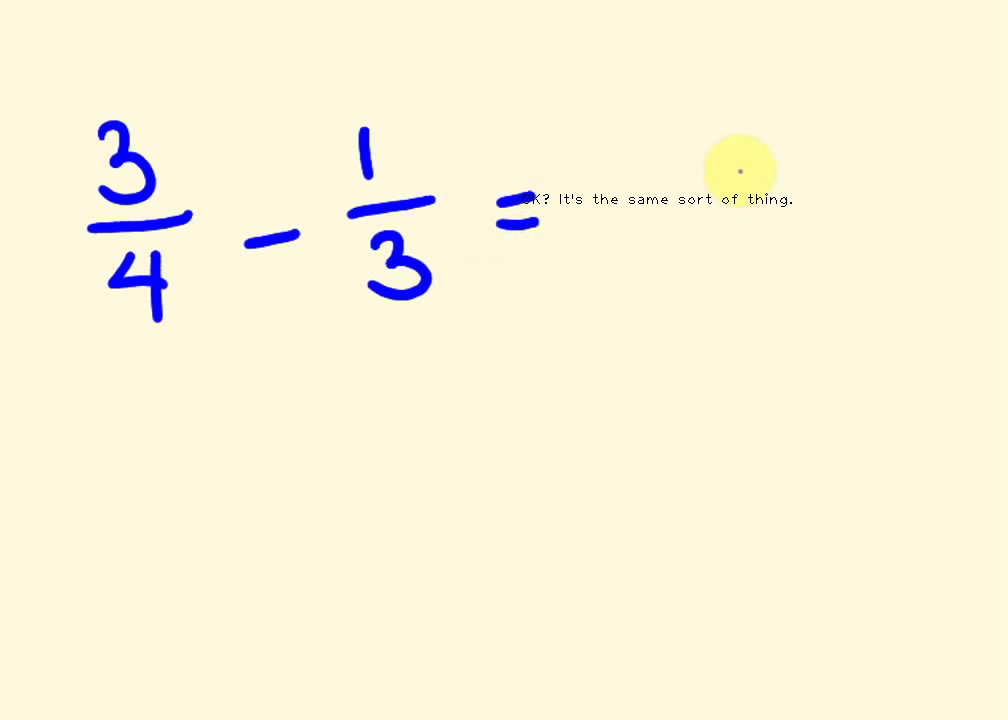 3/4 - 1/3 =
OK? It's the same sort of thing.